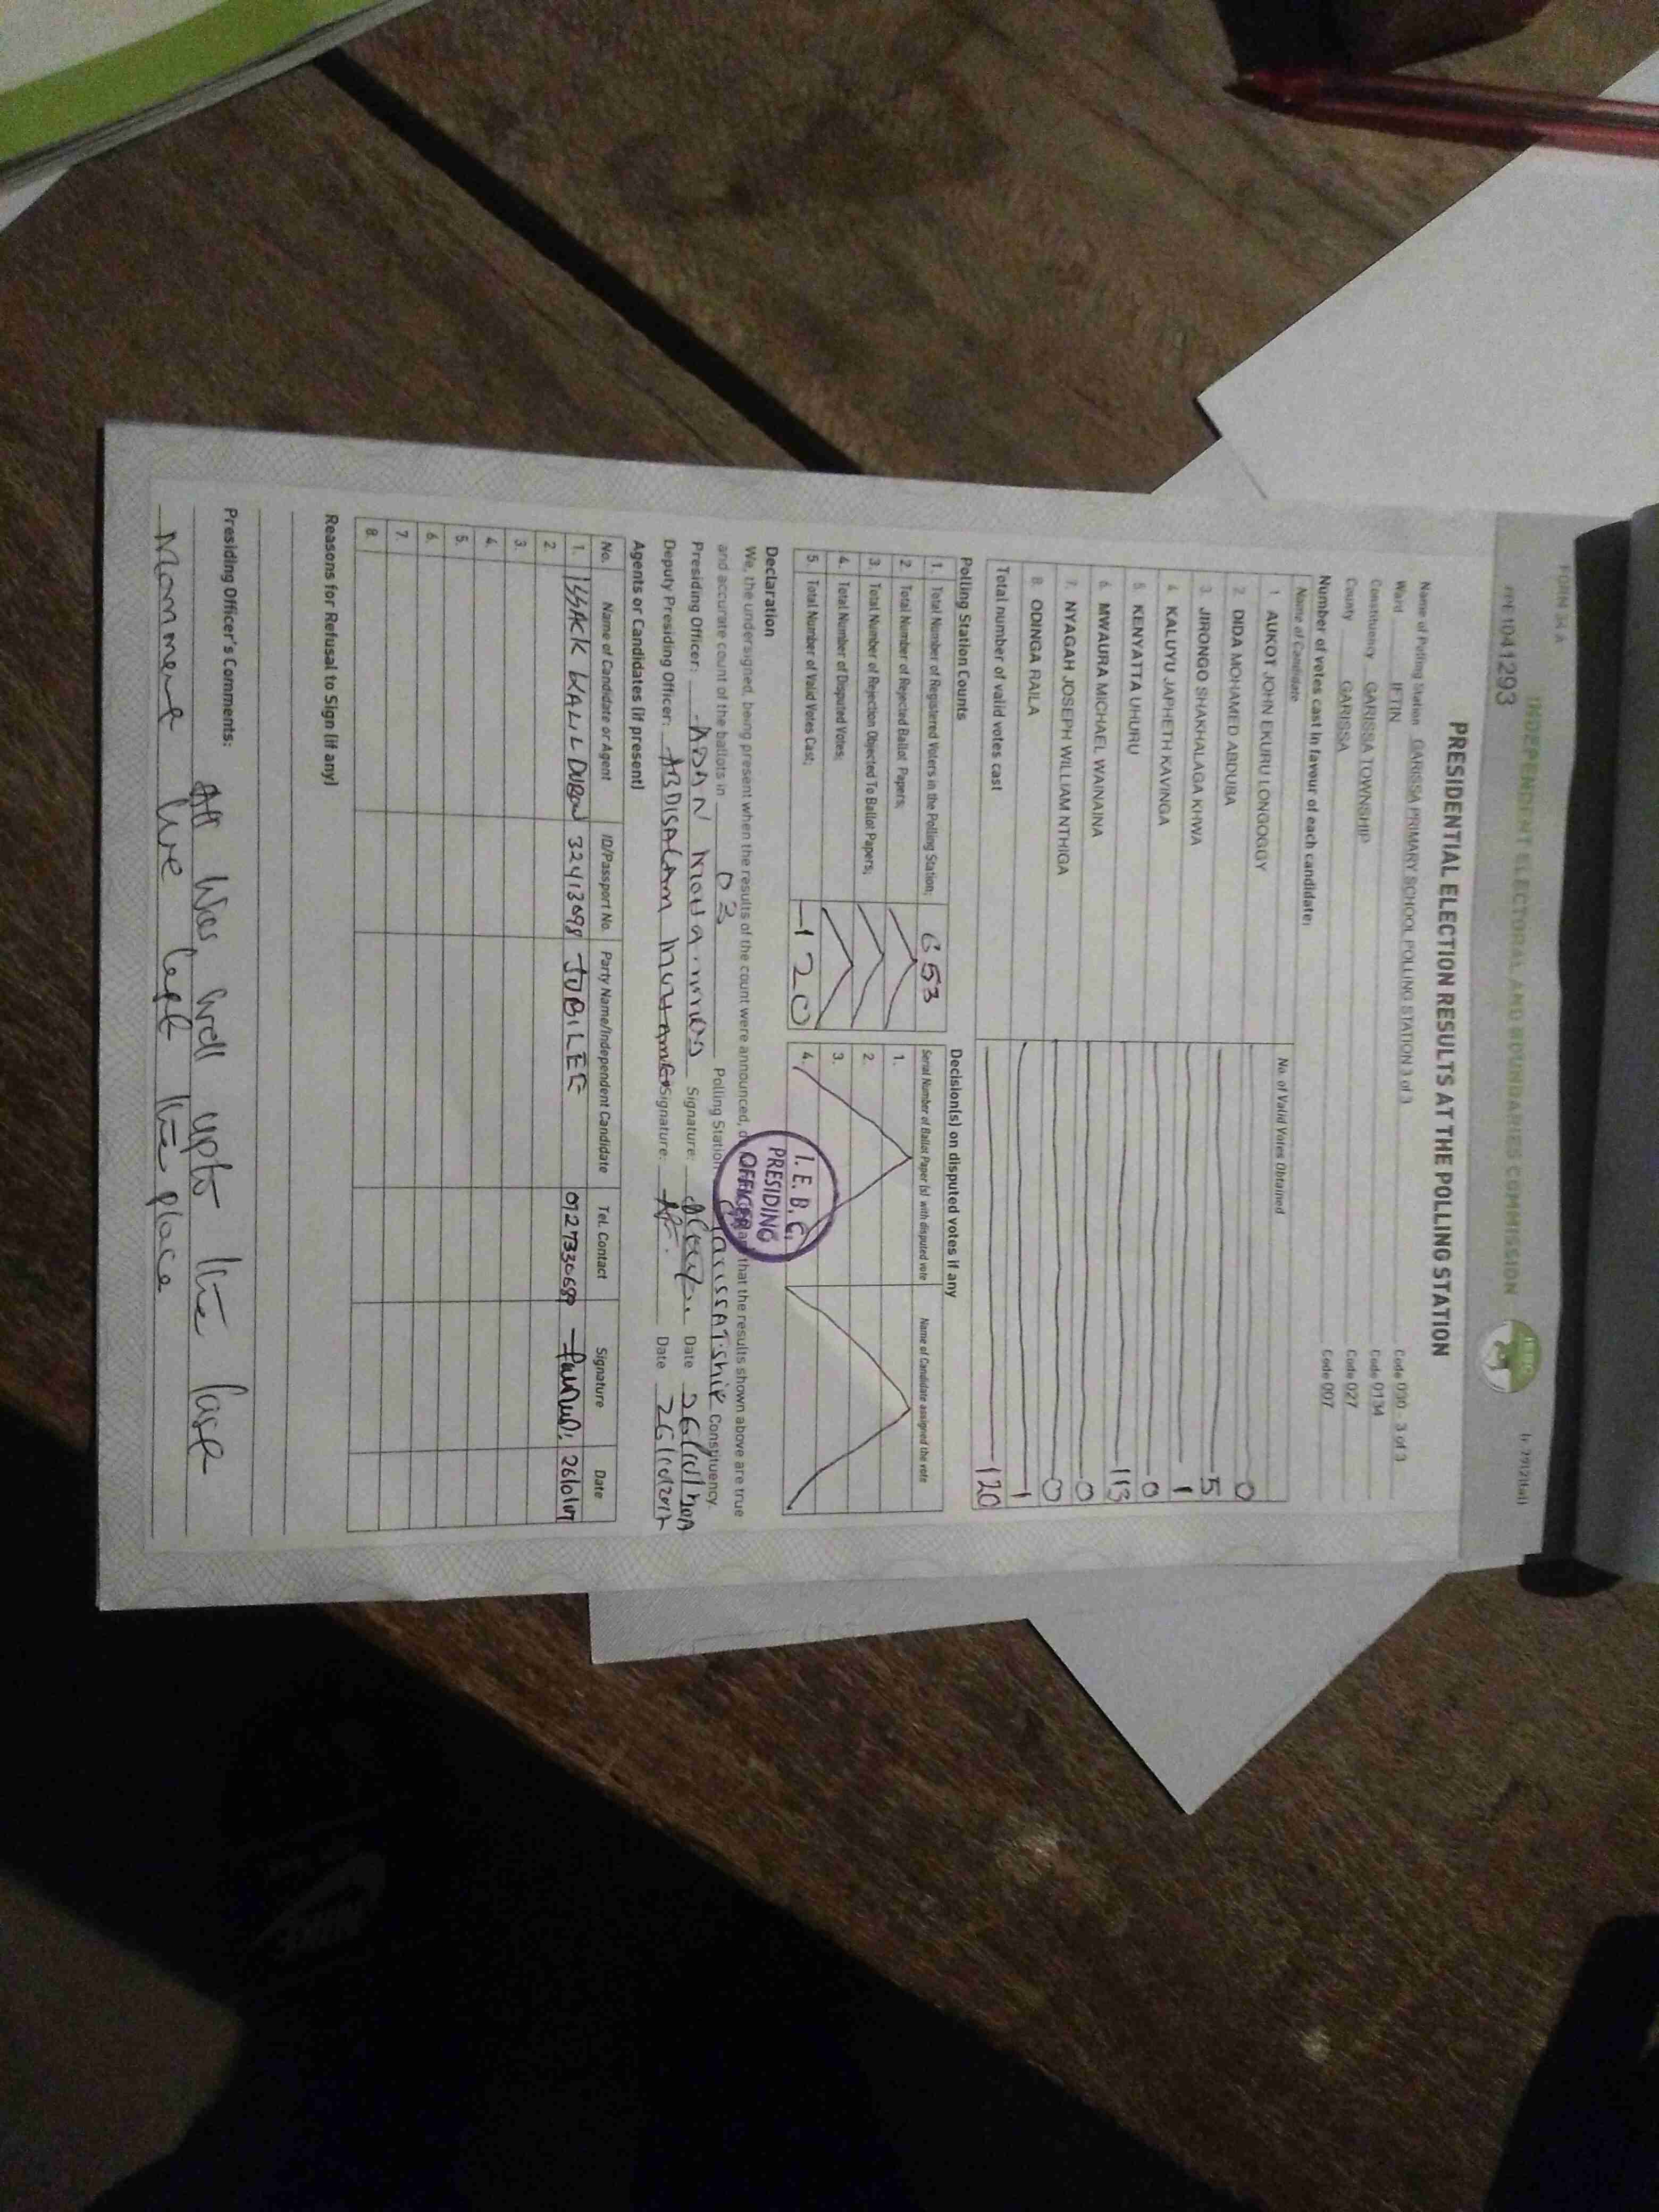 FORM 34 A
INDEPENDENT ELECTORAL AND BOUNDARIES COMMISSION
IEBC
PRE1041293
PRESIDENTIAL ELECTION RESULTS AT THE POLLING STATION
Name of Polling Station GARISSA PRIMARY SCHOOL POLLING STATION 3 of 3 Code 030 - 3 of 3
Ward IFTIN Code 0134
Constituency GARISSA TOWNSHIP Code 027
County GARISSA Code 007
Number of votes cast in favour of each candidate:
Name of Candidate No. of Valid Votes Obtained
1 AUKOT JOHN EKURU LONGOGGY 0
2. DIDA MOHAMED ABDUBA 5
3. JIRONGO SHAKHALAGA KHWA 1
4. KALUYU JAPHETH KAVINGA 0
5. KENYATTA UHURU 113
6. MWAURA MICHAEL WAINAINA 0
7. NYAGAH JOSEPH WILLIAM NTHIGA 0
8. ODINGA RAILA 1
Total number of valid votes cast 120
Polling Station Counts
1. Total Number of Registered Voters in the Polling Station; 653
2. Total Number of Rejected Ballot Papers;
3. Total Number of Rejection Objected To Ballot Papers;
4. Total Number of Disputed Votes;
5. Total Number of Valid Votes Cast; 120
Decision(s) on disputed votes if any
Serial Number of Ballot Paper (s) with disputed vote Name of Candidate assigned the vote
1.
2.
3.
4.
I. E. B. C.
PRESIDING
OFFICER
Declaration
We, the undersigned, being present when the results of the count were announced, that the results shown above are true
and accurate count of the ballots in 03 Polling Station Constituency.
Presiding Officer: ADAN Signature: Date
Deputy Presiding Officer: ABDISALAM Signature: Date 26/10/2017
Agents or Candidates (if present)
No. Name of Candidate or Agent ID/Passport No. Party Name/Independent Candidate Tel. Contact Signature Date
1. ISSACK KALIL DUBOW 32413098 JUBILEE
2.
3.
4.
5.
6.
7.
8.
Reasons for Refusal to Sign (if any)
Presiding Officer's Comments:
All was well upto the last
moment we left the place